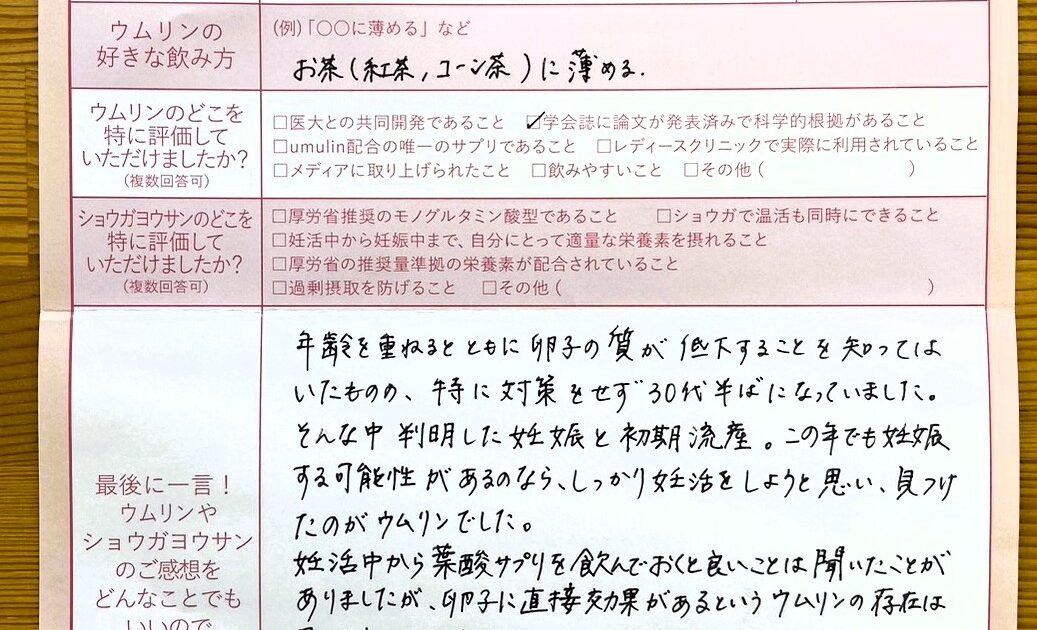 ウムリンの
好きな飲み方
(例)「〇〇に薄める」など
お茶(紅茶,コーン茶)に薄める.
ウムリンのどこを
特に評価して
いただけましたか?
(複数回答可)
□医大との共同開発であること ☑学会誌に論文が発表済みで科学的根拠があること
□umulin配合の唯一のサプリであること □レディースクリニックで実際に利用されていること
□メディアに取り上げられたこと □飲みやすいこと □その他( )
ショウガヨウサンのどこを
特に評価して
いただけましたか?
(複数回答可)
□厚労省推奨のモノグルタミン酸型であること □ショウガで温活も同時にできること
□妊活中から妊娠中まで、自分にとって適量な栄養素を摂れること
□厚労省の推奨量準拠の栄養素が配合されていること
□過剰摂取を防げること □その他( )
最後に一言!
ウムリンや
ショウガヨウサン
のご感想を
どんなことでも
いいので
年齢を重ねるとともに卵子の質が低下することを知っては
いたものの、特に対策をせず30代半ばになっていました。
そんな中判明した妊娠と初期流産。この年でも妊娠
する可能性があるのなら、しっかり妊活をしようと思い、見つけ
たのがウムリンでした。
妊活中から葉酸サプリを飲んでおくと良いことは聞いたことが
ありましたが、卵子に直接効果があるというウムリンの存在は